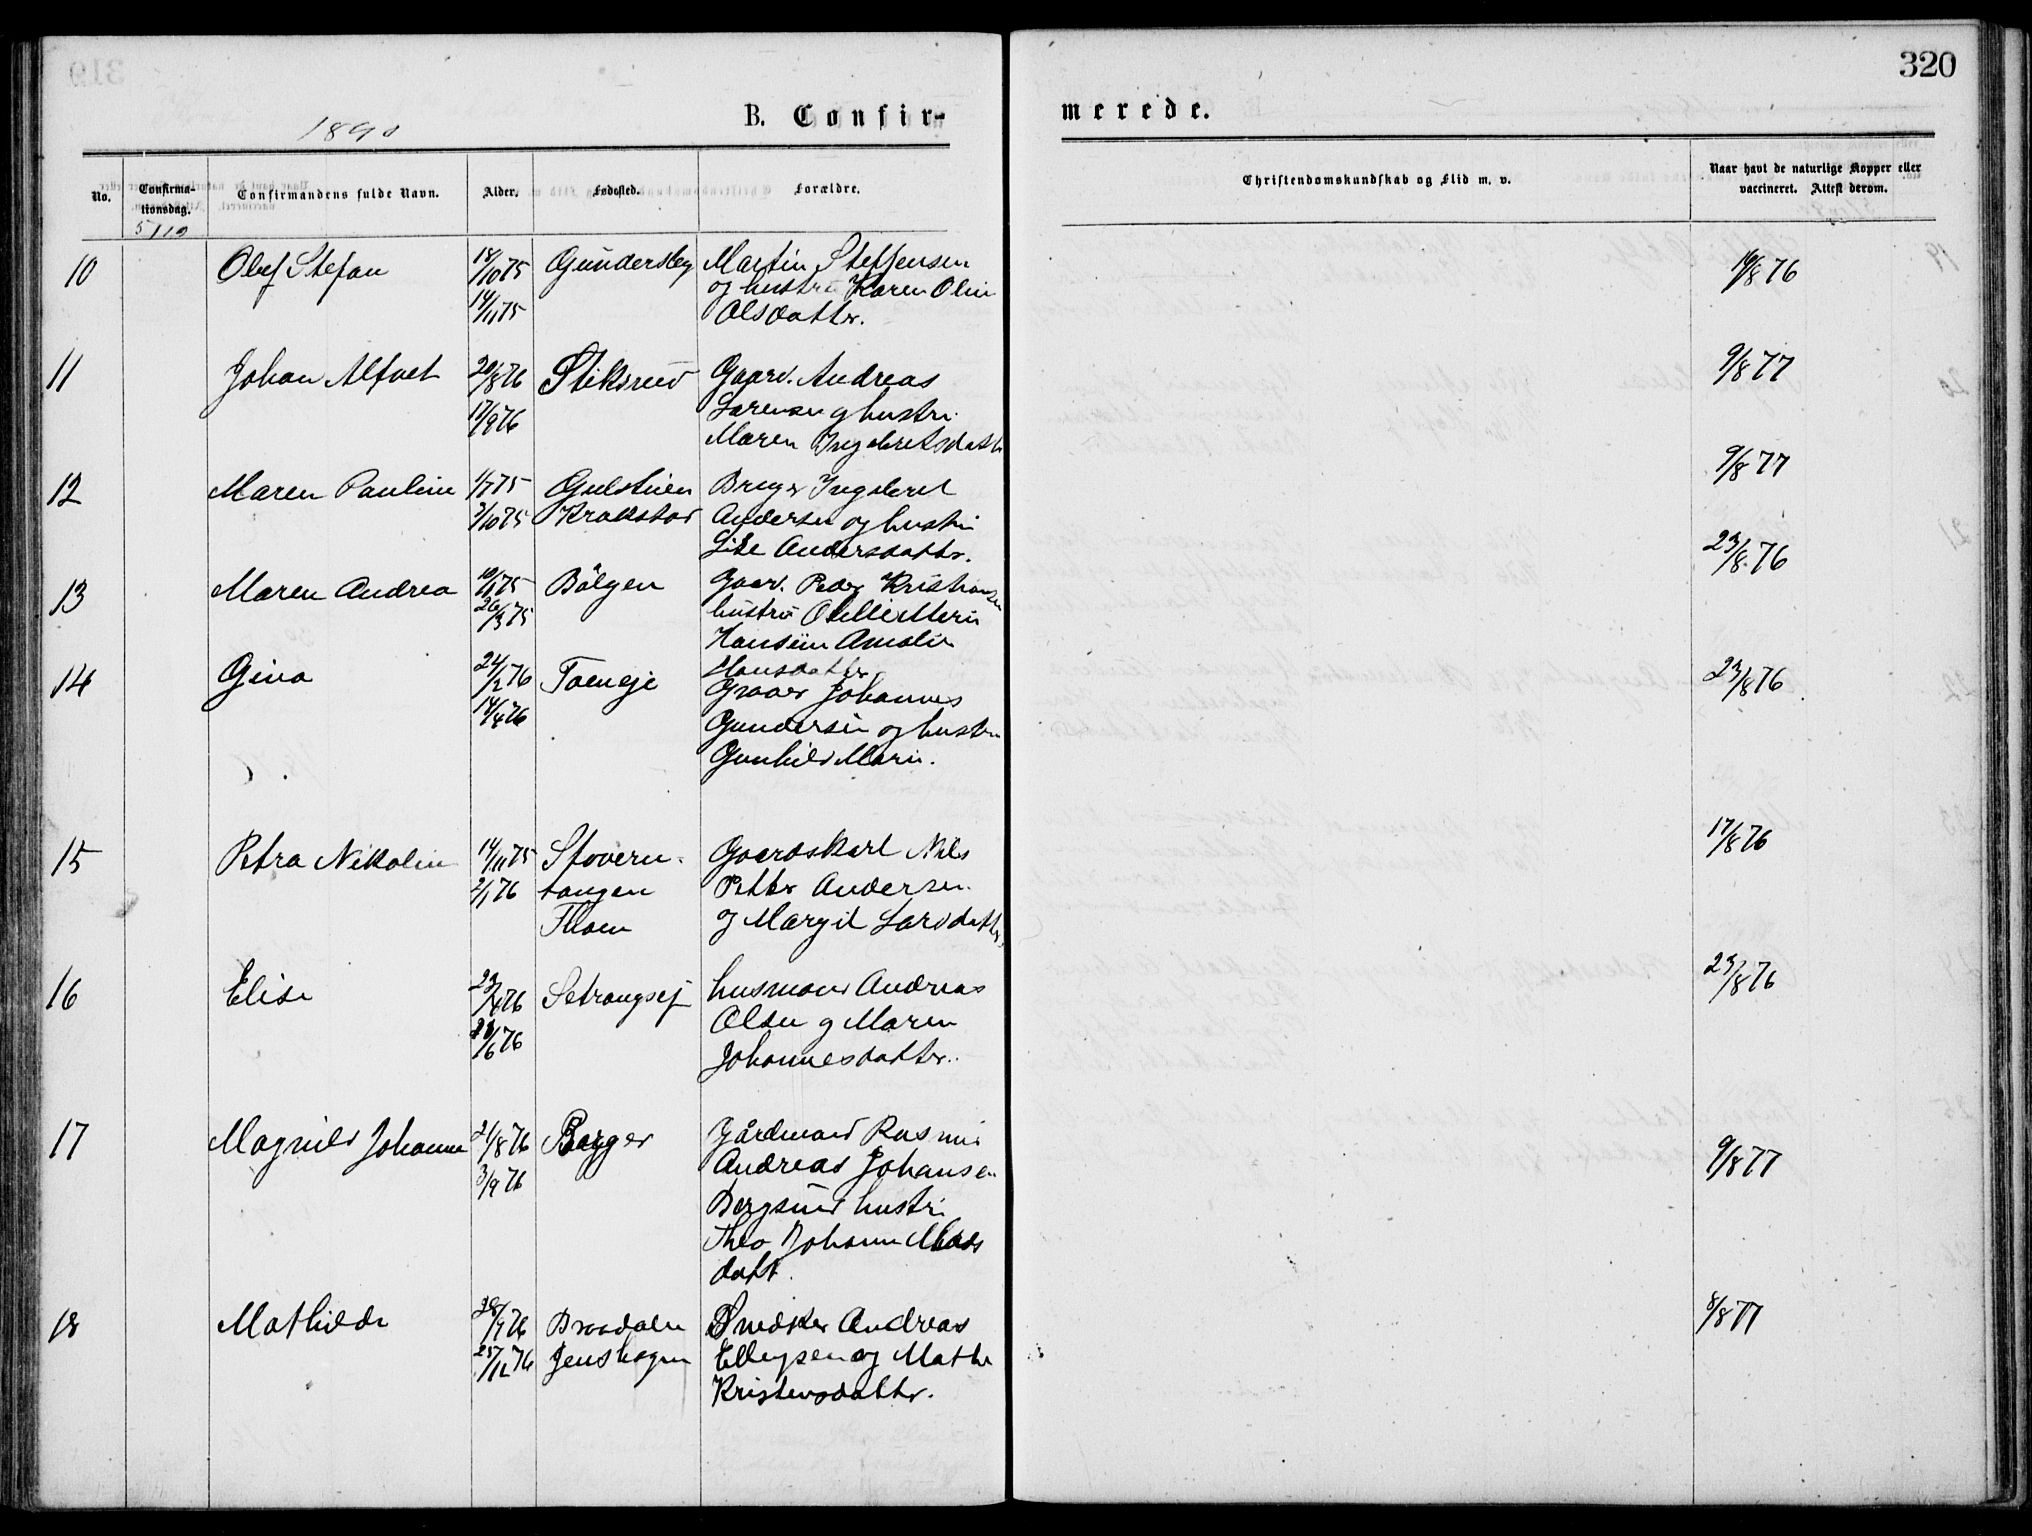 320
1890
B. Confir-
merede.
No.
Confirma-
tionsdag.
Confirmandens fulde Navn.
Alder.
Fødested.
Forældre.
Christendomskundskab og Flid m. v.
Naar havt de naturlige Kopper eller
vaccineret. Attest derom.
5/10
10 Olaf Stefan 18/10 75 Gundersby Martin Steffensen 14/8 76
og hustru Karen Olin
14/11 75 Olsdatter.
11 Johan Alfret 20/8 76 Stiksrud Gaard. Andreas 9/8 77
17/9 76 Larensen og hustru
Maren Ingebretsdatter
12 Maren Pauline 1/7 75 Gulstuen Bruger Ingebret 9/8 77
3/10 75 Krakstad Andersen og hustru
Lise Andersdatter.
13 Maren Andrea 10/1 75 Bølgen Gaard. Peder Kristiansen 23/8 76
26/3 75 hustru Otellie Marie
Hansine Amalie
Hansdatter
14 Gina 24/2 76 Toeneje Johannes 23/8 76
14/4 76 Gundersen og hustru
Gunhild Marie.
15 Petra Nikolin 14/11 75 Stovern- Gaardskarl Nils 17/8 76
2/1 76 tangen Petter Andersen
Thoen og Margit Larsdatter
16 Elise 23/4 76 Setrangsej husmand Andreas 23/8 76
/6 76 Olsen og Maren
Johannesdatter.
17 Magnild Johanne 21/8 76 Berger Gårdmand Rasmus 9/8 77
3/9 76 Andreas Johansen
Bergsund hustru
Thea Johanne Mads
datt.
18 Mathilde 28/9 76 Braadalen Snedker Andreas 8/8 77
25/12 76 Jenshagen Ellingsen og Mathe
Kristensdatter.